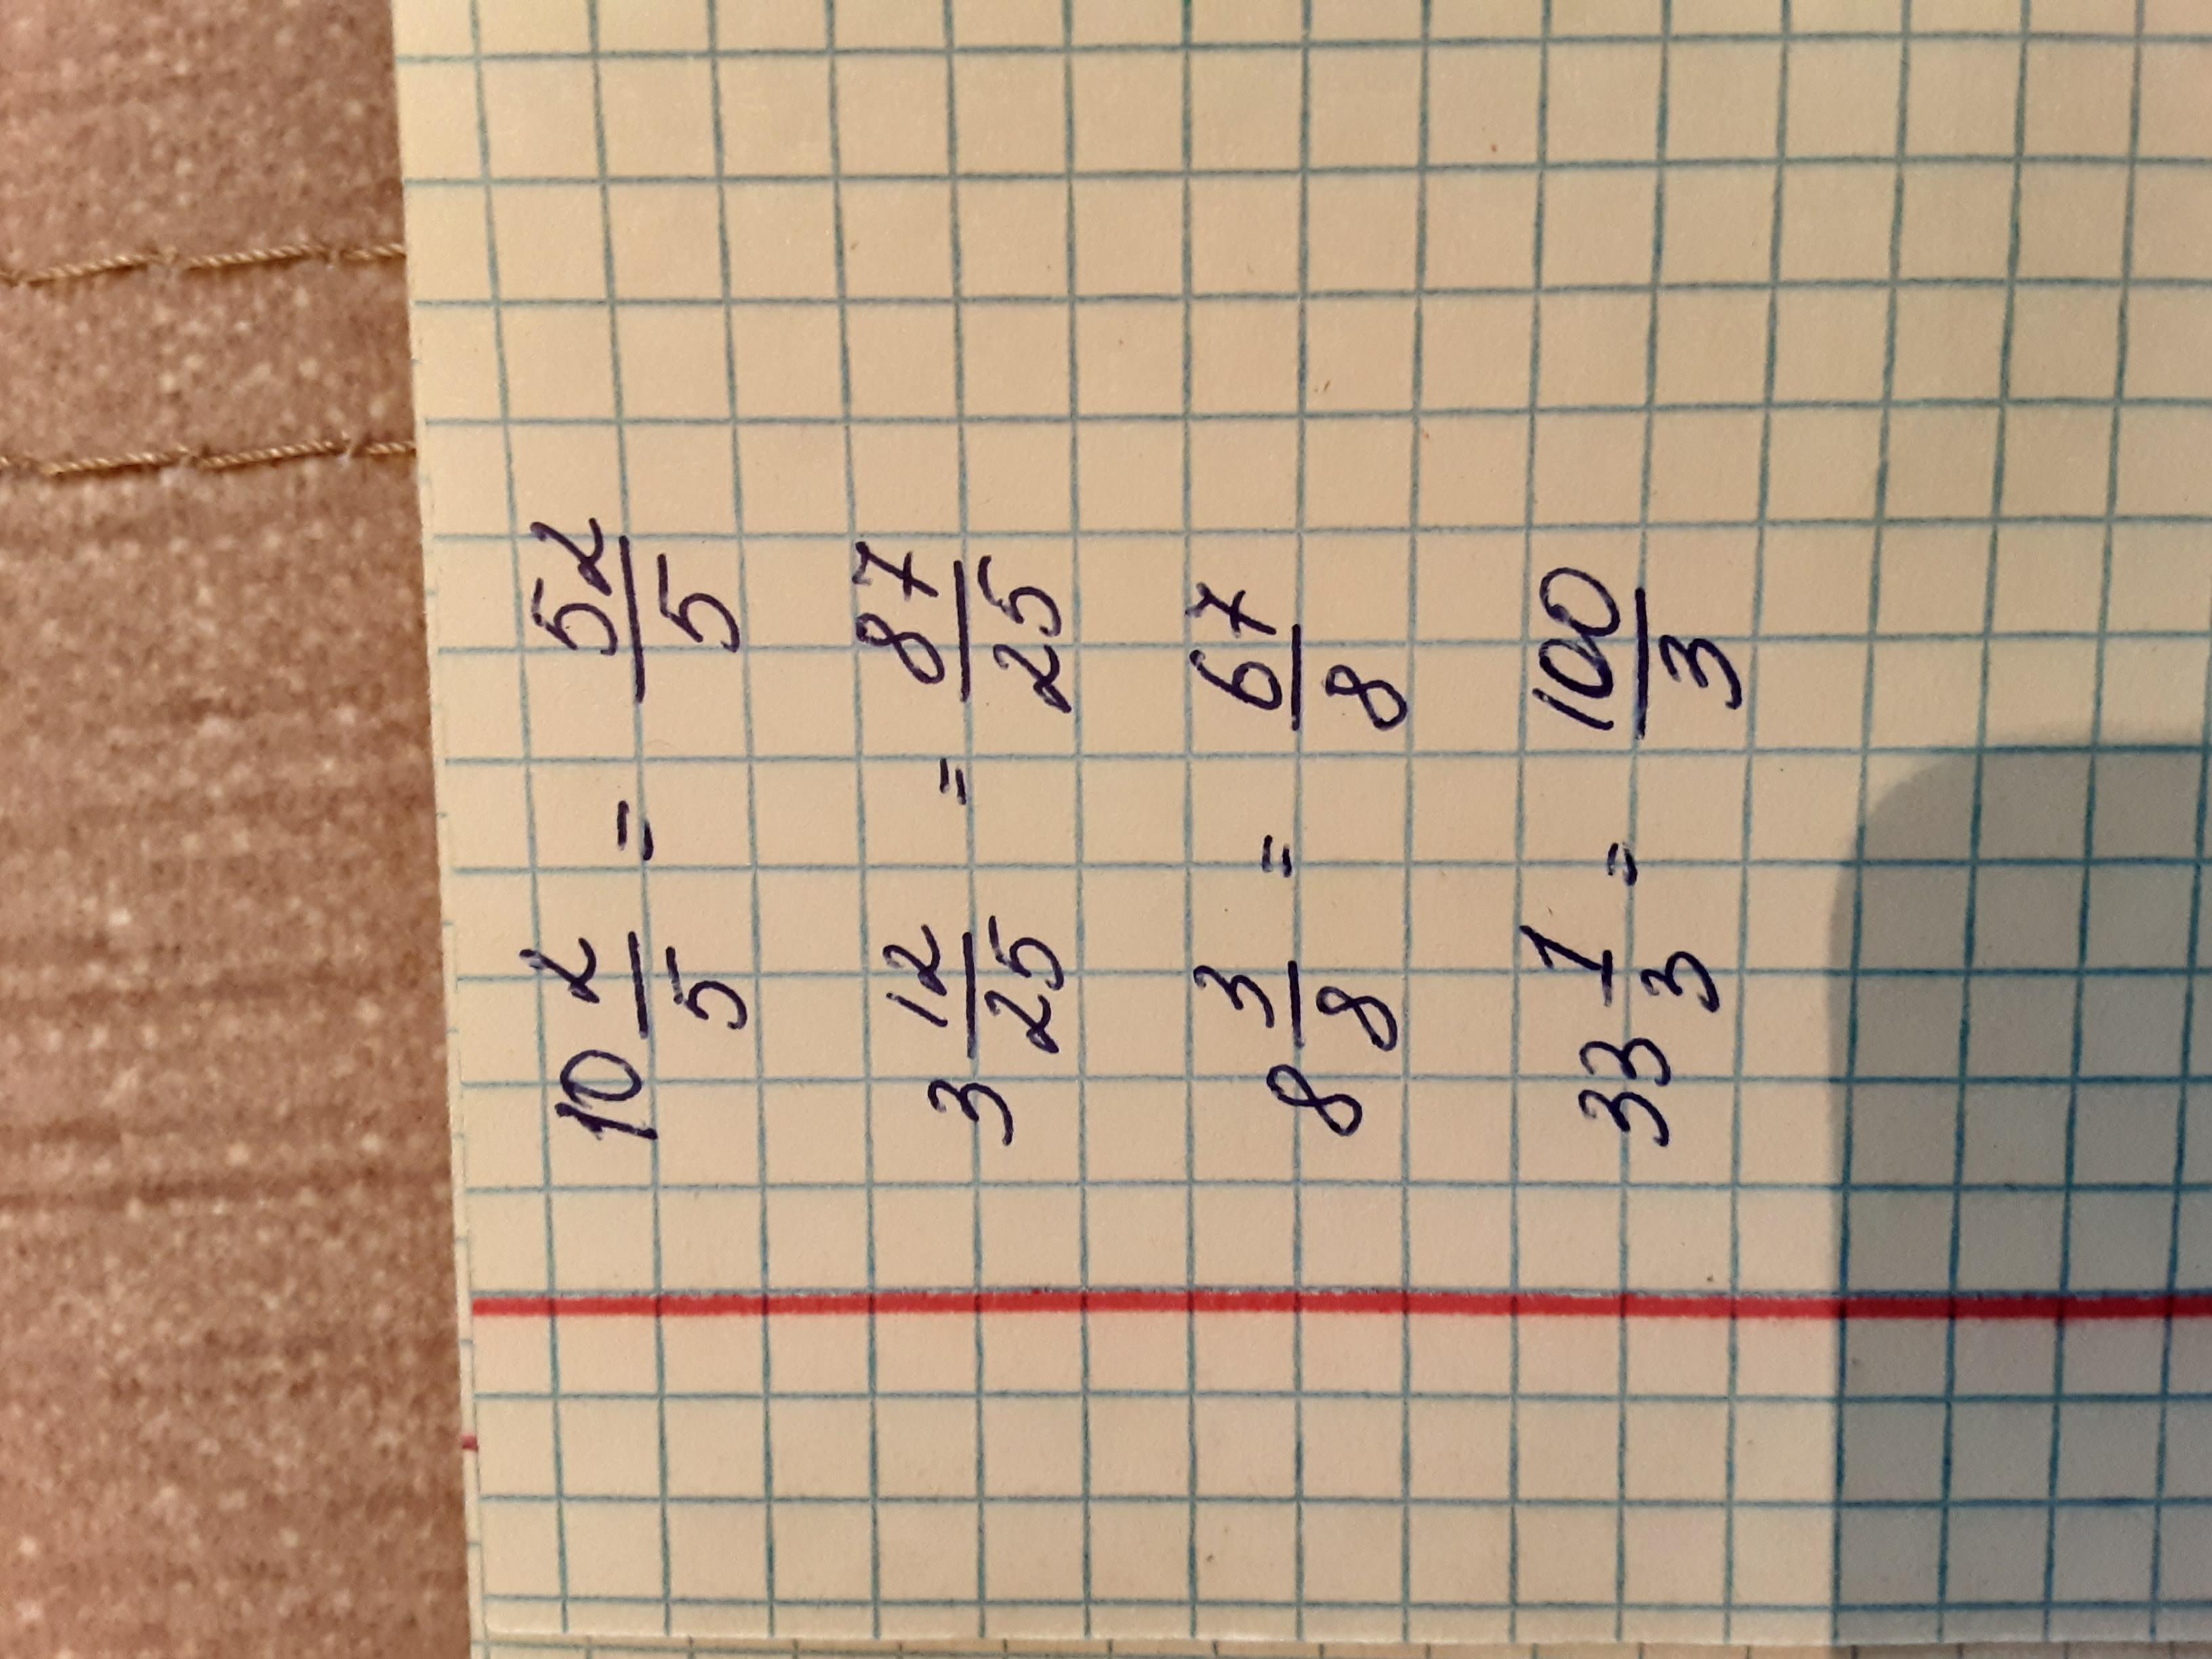 10 2/5 = 52/5
3 12/25 = 87/25
8 3/8 = 67/8
33 1/3 = 100/3